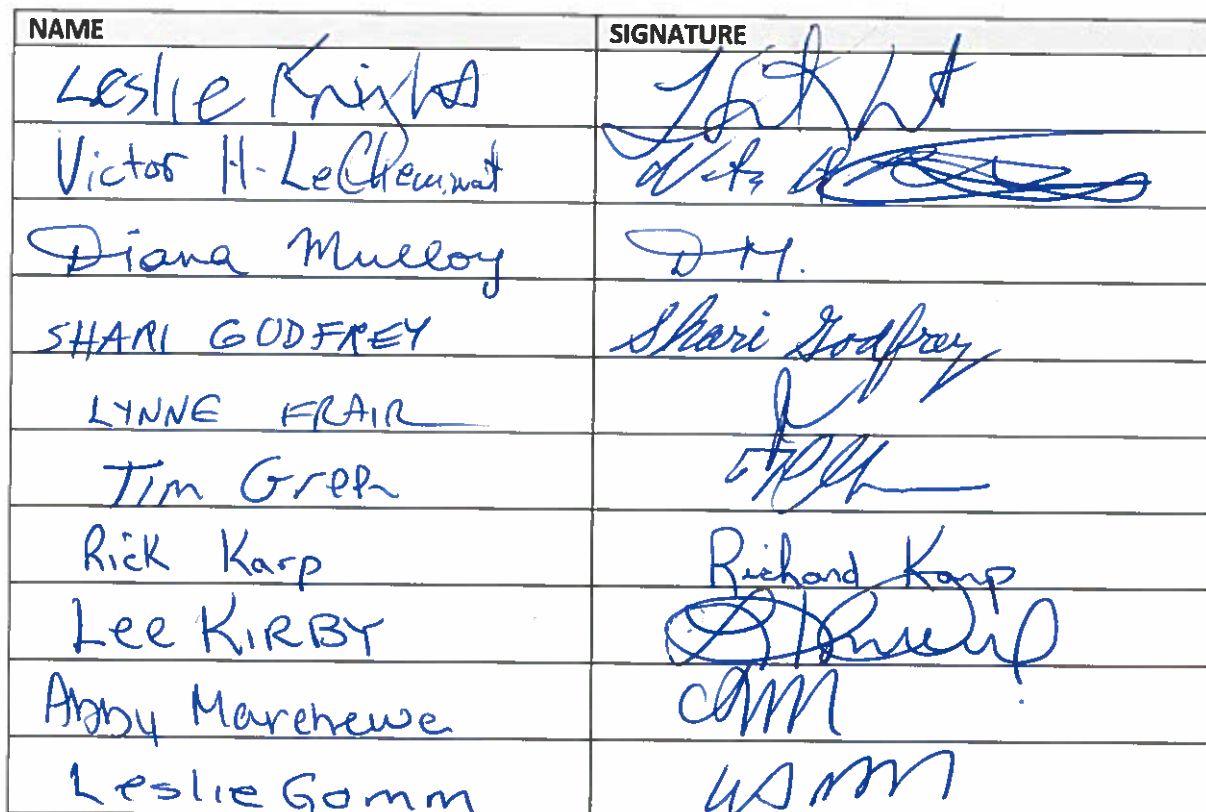 NAME SIGNATURE
Leslie Knight
Victor H. LeCheminat
Diana Mulloy D M.
SHARI GODFREY Shari Godfrey
LYNNE FRAIR
Tim Green
Rick Karp Richard Karp
Lee KIRBY
Abby
Leslie Gomm